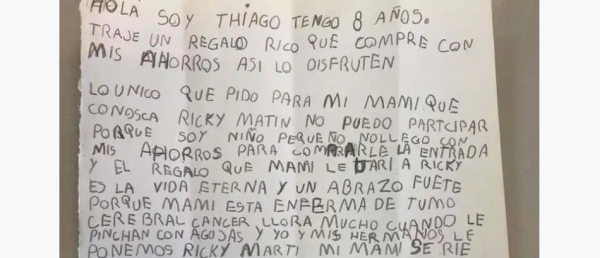 HOLA SOY THIAGO TENGO 8 AÑOS.
TRAJE UN REGALO RICO QUE COMPRE CON
MIS AHORROS ASI LO DISFRUTEN
LO UNICO QUE PIDO PARA MI MAMI QUE
CONOSCA RICKY MATIN NO PUEDO PARTCIPAR
PORQUE SOY NIÑO PEQUEÑO NOLLEGO CON
MIS AHORROS PARA COMPRARLE LA ENTRADA
Y EL REGALO QUE MAMI LE DARI A RICKY
ES LA VIDA ETERNA Y UN ABRAZO FUETE
PORQUE MAMI ESTA ENFERMA DE TUMO
CEREBRAL CANCER LLORA MUCHO CUANDO LE
PINCHAN CON AGOJAS Y YO Y MIS HERMANOS LE
PONEMOS RICKY MARTI MI MAMI SE RIE